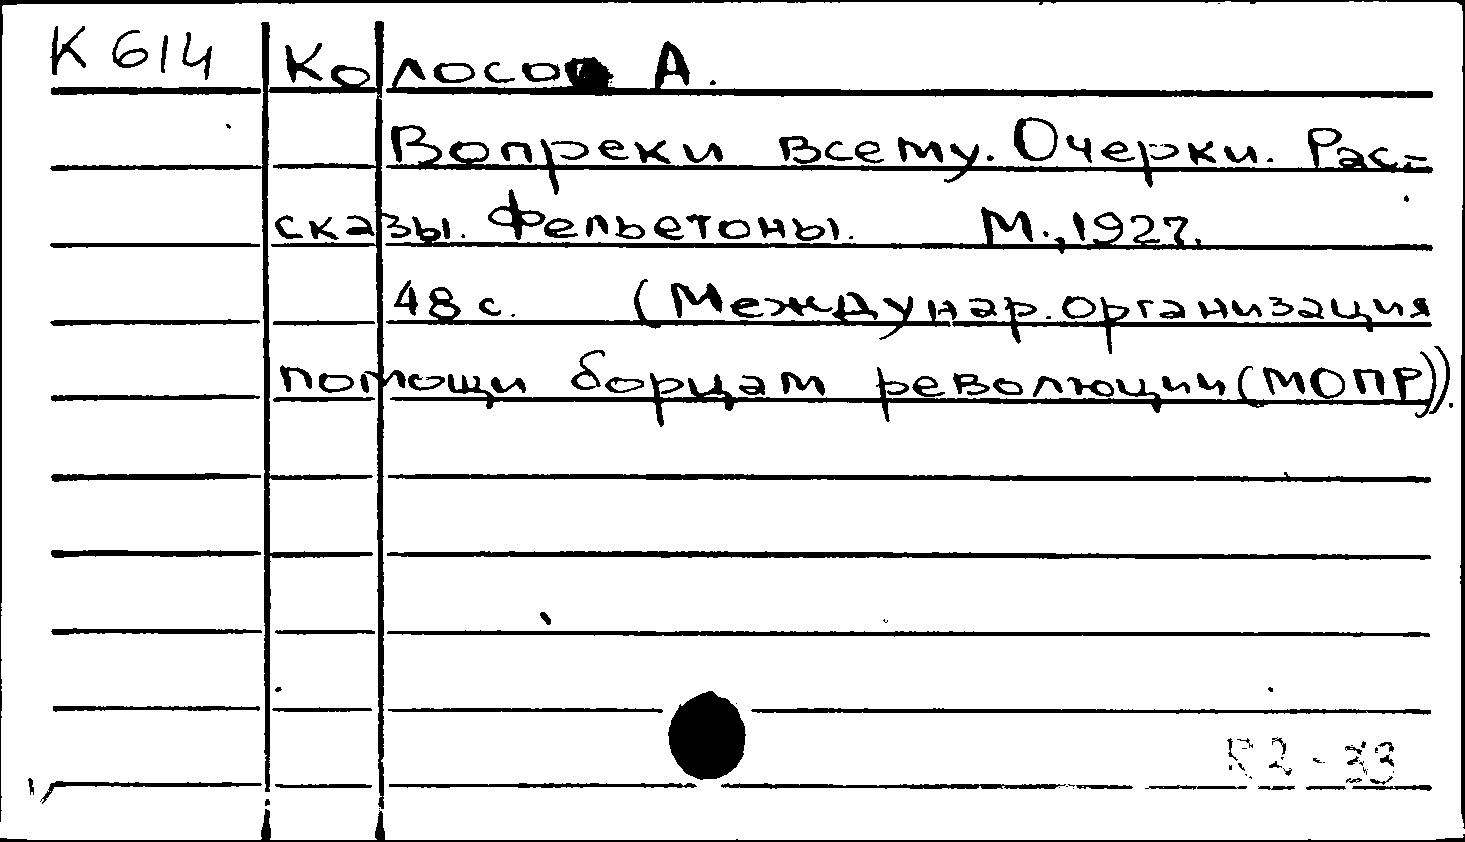 К 614 Колосов А.
Вопреки всему. Очерки. Рас-
сказы. Фельетоны. М., 1927.
48 с. (Междунар. организация
помощи борцам революции (МОПР)).
R2-33